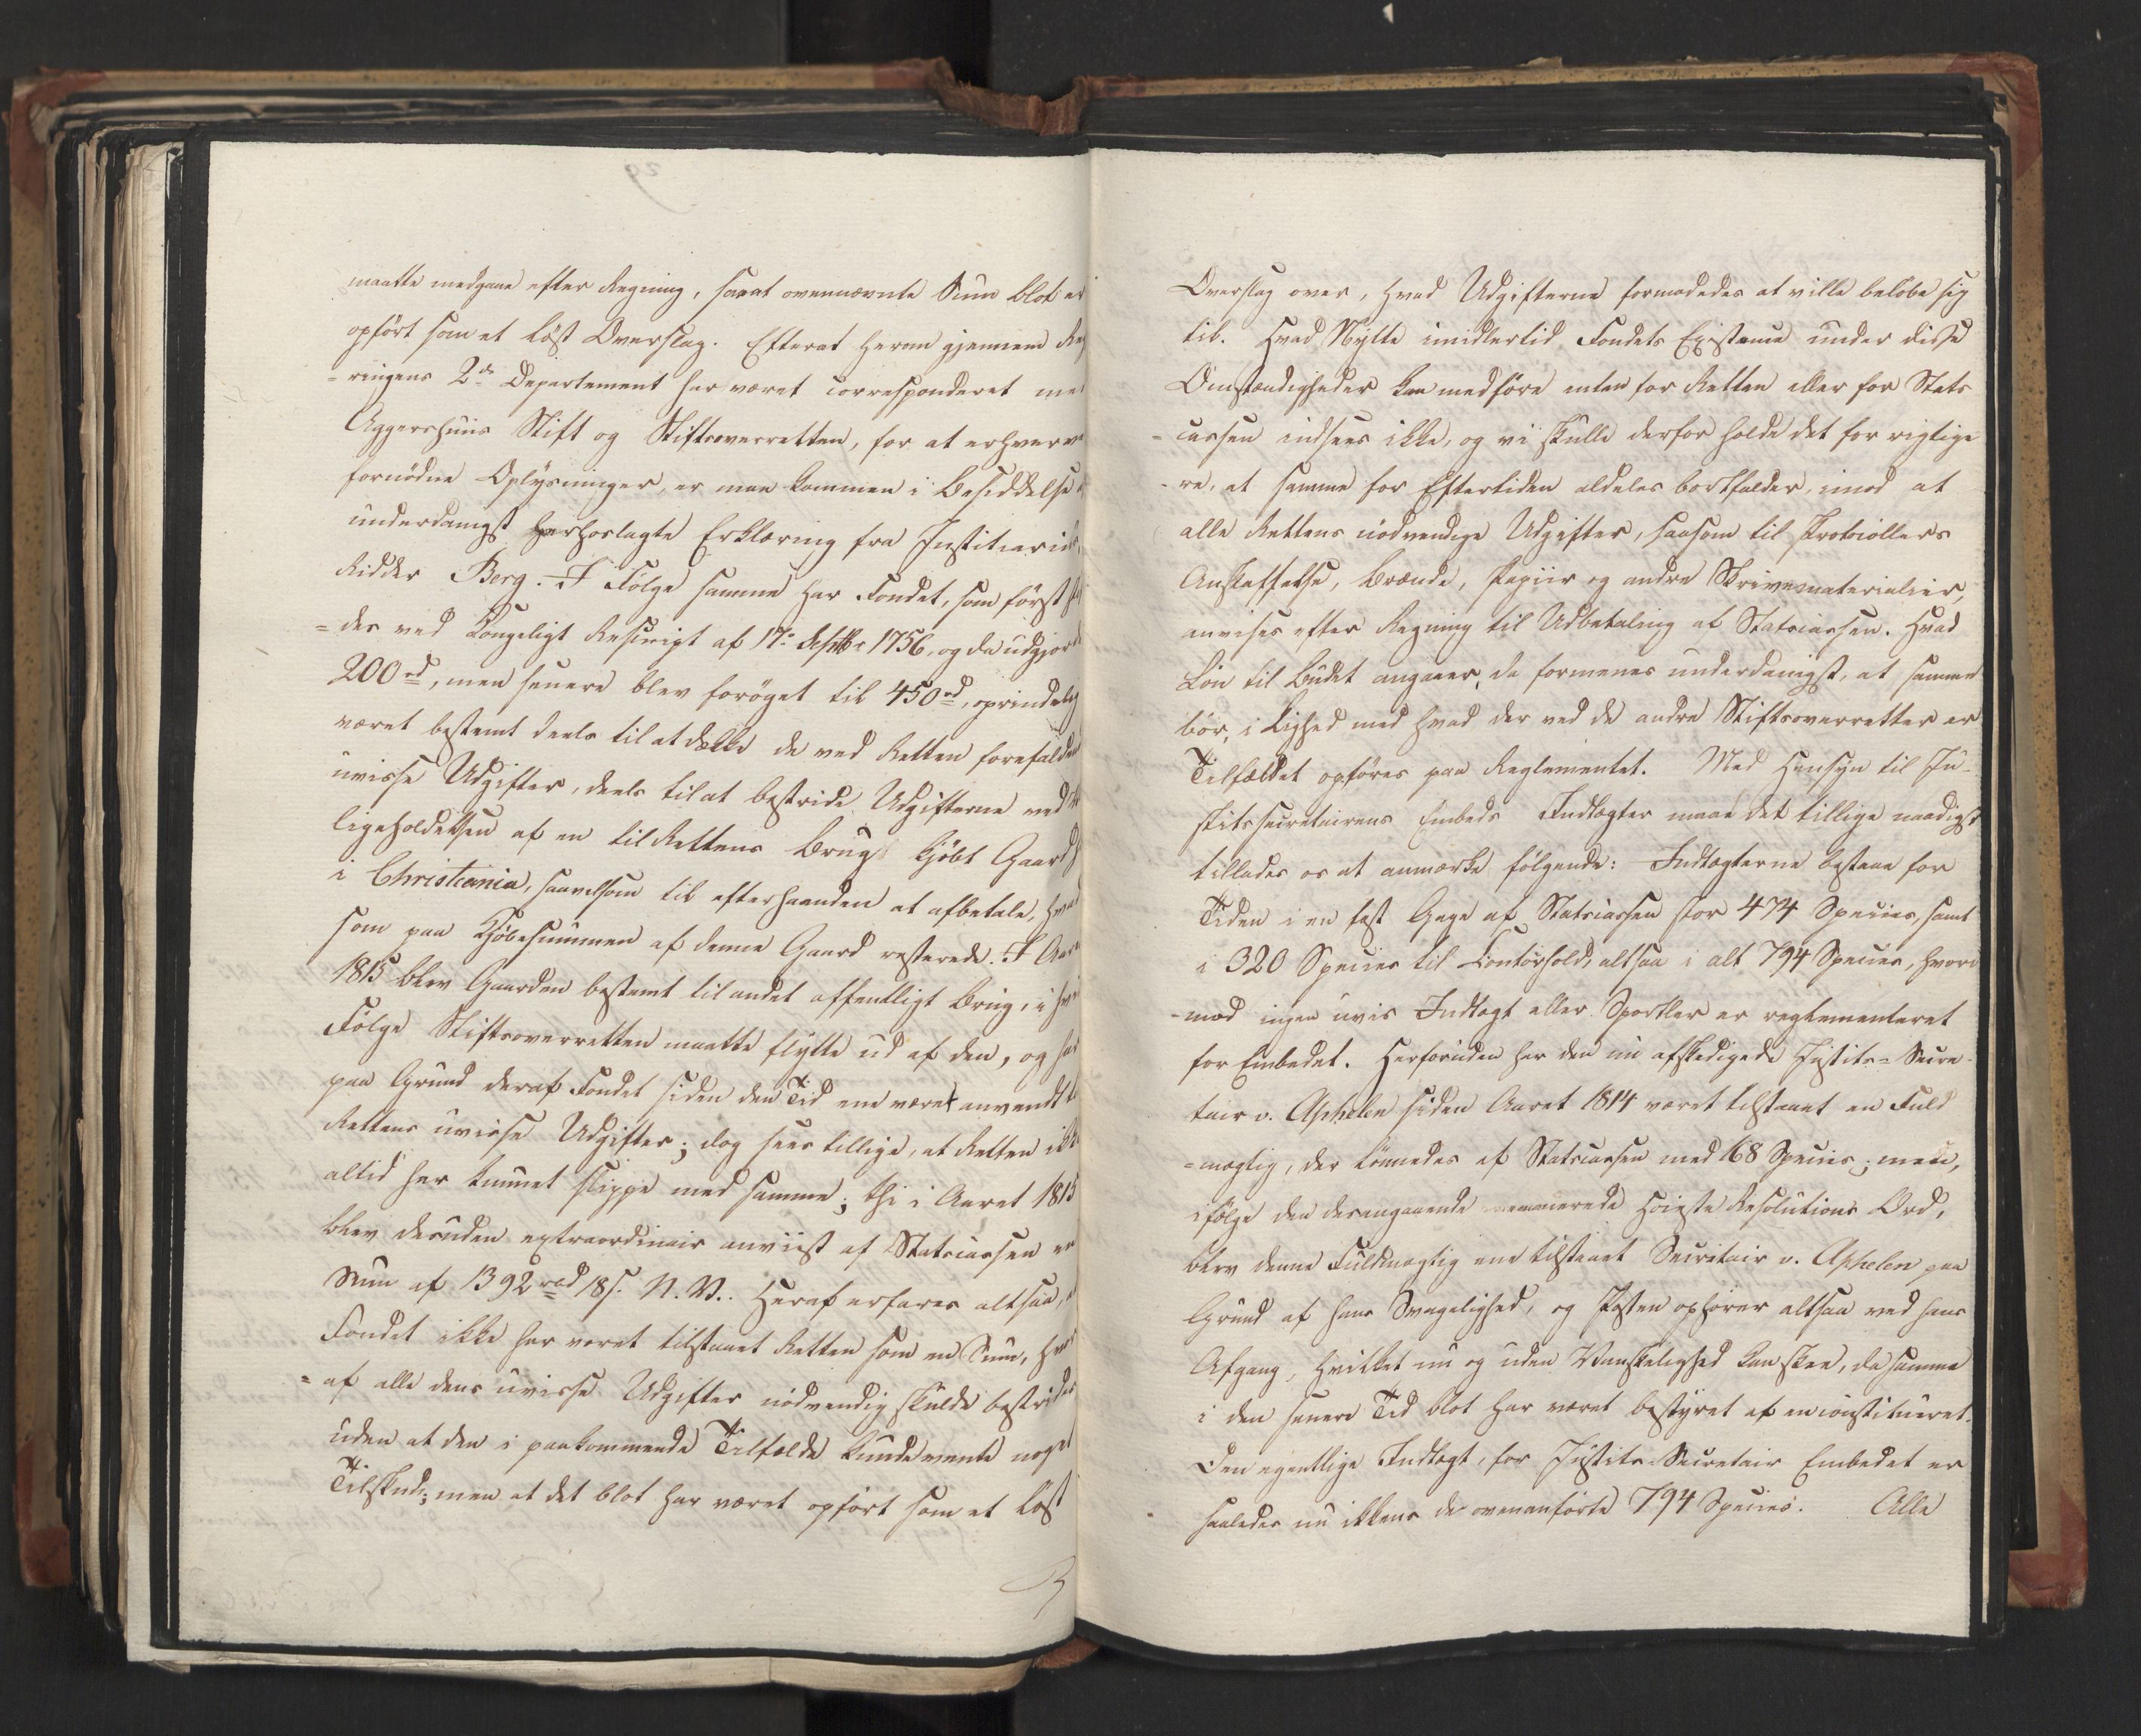 maatte medgaae efter Regning, saaat ovennævnte Sum blot er
opført som et løst Overslag. Efterat herom gjennem Reg
=ringens 2de Departement har været correspondéret med
Aggershuus Stift og Stiftsoverretten, for at erhverve
fornødne Oplysninger, er man kommen i Besiddelse af
underdanigst hoslagte Erklæring fra Justitiarius,
Ridder Berg. I Følge samme har Fondet, som først
=des ved Kongeligt Rescript af 17de Septbr 1756, og da udgjorde
200 rd, men senere blev forøget til 450 rd, oprindelig
været bestemt deels til at dække de ved Retten forefaldende
uvisse Udgifter, deels til at bestride Udgifterne ved
ligeholdelsen af en til Rettens Brug kjøbt Gaard
i Christiania, saavelsom til efterhaanden at afbetale, hvad
som paa Kjøbesummen af denne Gaard resterede. I Aaret
1815 blev Gaarden bestemt til andet offentligt Brug, i hvis
Følge Stiftsoverretten maatte flytte ud af den, og har
paa Grund deraf Fondet siden den Tid ene været anvendt til
Rettens uvisse Udgifter; dog sees tillige, at Retten ikke
altid har kunnet slippe med samme; thi i Aaret 1815
blev desuden extraordinair anviist af Statscassen en
Sum af 1392 rd 18 s. N. V.. Heraf erfares altsaa, at
Fondet ikke har været tilstaaet Retten som en Sum, hvor
=af alle dens uvisse Udgifter nødvendig skulde bestrides
uden at den i paakommende Tilfælde kunde vente noget
Tilskud; men at det blot har været opført som et løst
Overslag over, hvad Udgifterne formodedes at ville beløbe sig
til. Hvad Nytte imidlertid Fondets Existence under disse
Omstændigheder kan medføre enten for Retten eller for Stats
=cassen indsees ikke, og vi skulle derfor holde det for rigtige
=re, at samme for Eftertiden aldeles bortfalder, imod at
alle Rettens nødvendige Udgifter, saasom til Protocollers
Anskaffelse, Brænde, Papiir og andre Skrivematerialier,
anvises efter Regning til Udbetaling af Statscassen. Hvad
Løn til Budet angaaer, da formenes underdanigst, at samme
bør, i Lighed med hvad der ved de andre Stiftsoverretter er
Tilfældet opføres paa Reglementet. Med Hensyn til Ju=
stitssecretairens Embeds Indtægter maae det tillige naadigst
tillades os at anmærke følgende: Indtægterne bestaae for
Tiden i en fast Gage af Statscassen stor 474 Species, samt
i 320 Species til Contoirhold, altsaa i alt 794 Species, hvori
=mod ingen uvis Indtægt eller Sportler er reglementeret
for Embedet. Herforuden har den nu afskedigede Justits=Secre=
tair v. Aphelen siden Aaret 1814 været tilstaaet en Fuld
=mægtig, der lønnedes af Statscassen med 168 Species; men,
ifølge den desangaaende emanerede Høieste Resolutions Ord,
blev denne Fuldmægtig ene tilstaaet Secretair v. Aphelen paa
Grund af hans Svagelighed, og Posten ophører altsaa ved hans
Afgang, hvilket nu og uden Vanskelighed kan skee, da samme
i den senere Tid blot har været bestyret af en constitueret.
Den egentlige Indtægt, for Justits=Secretair Embedet er
saaledes nu ikkuns de ovenanførte 794 Species. Alle